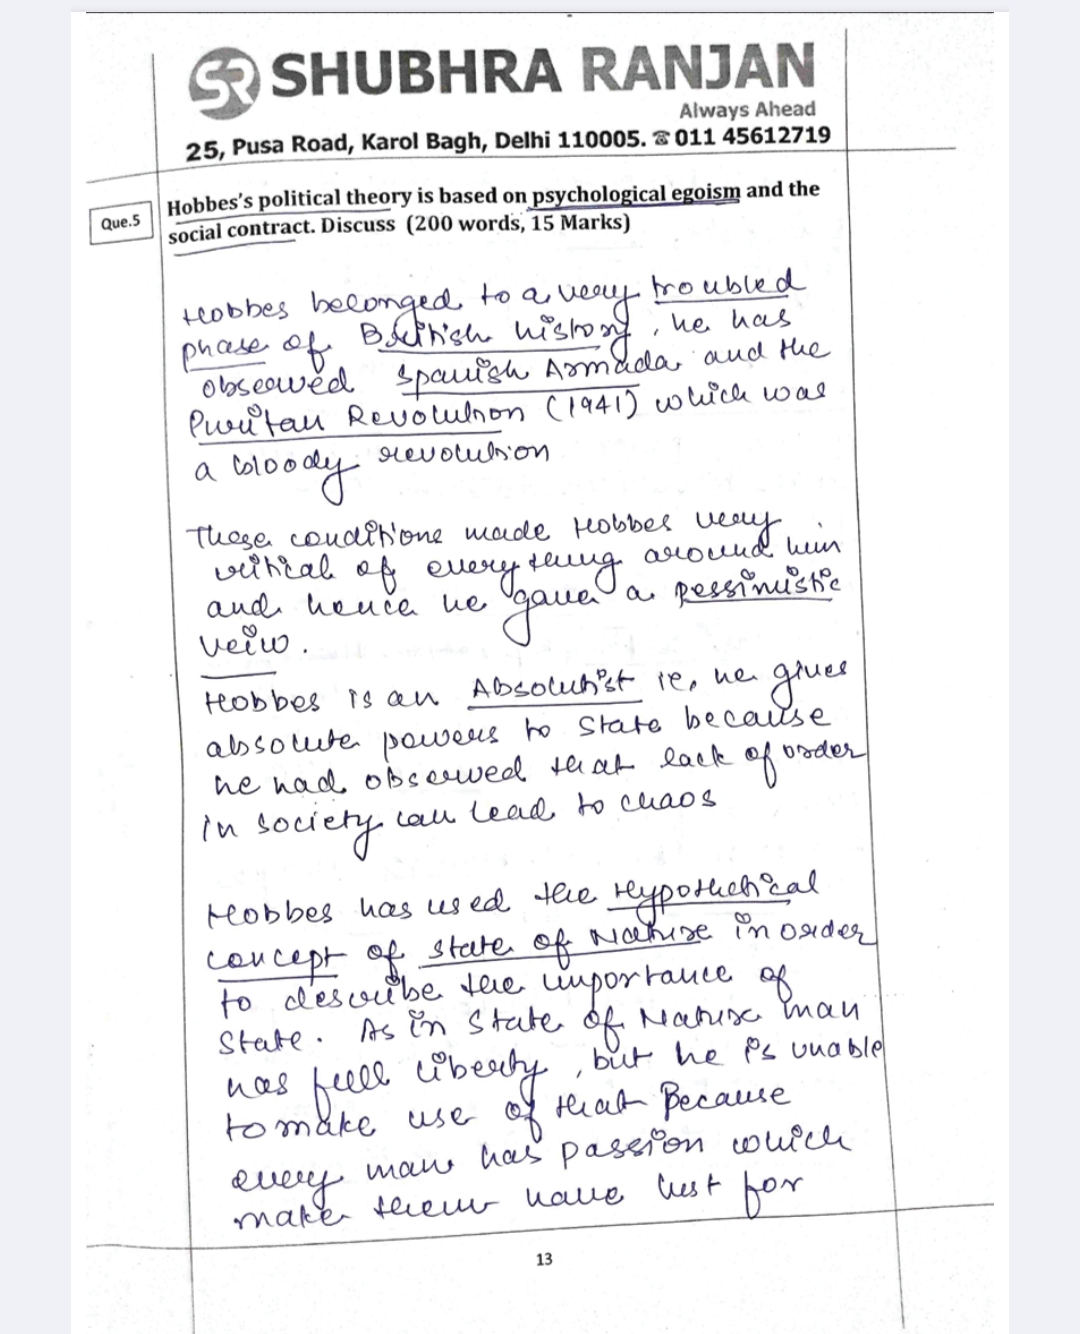 SR SHUBHRA RANJAN
Always Ahead
25, Pusa Road, Karol Bagh, Delhi 110005. ☎ 011 45612719
Que.5
Hobbes's political theory is based on psychological egoism and the
social contract. Discuss (200 words, 15 Marks)
Hobbes belonged to a very troubled
phase of British history, he has
observed Spanish Armada and the
Puritan Revolution (1941) which was
a bloody revolution
These conditions made Hobbes very
critical of everything around him
and hence he gave a pessimistic
veiw.
Hobbes is an Absolutist ie, he gives
absolute powers to State because
he had observed that lack of order
in society can lead to chaos
Hobbes has used the Hypothetical
concept of state of Nature in order
to describe the importance of
State. As in State of Nature man
has full liberty, but he is unable
to make use of that Because
every man has passion which
make them have lust for
13